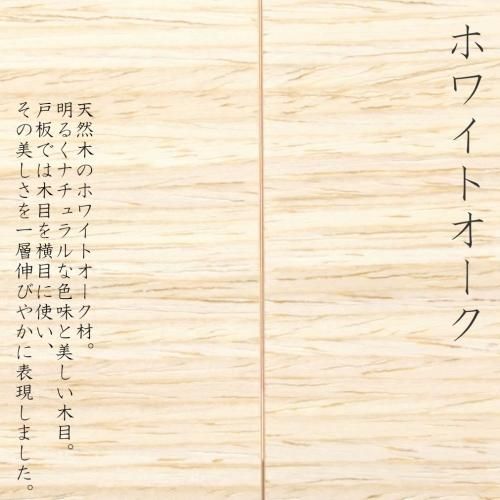 ホワイトオーク
天然木のホワイトオーク材。
明るくナチュラルな色味と美しい木目。
戸板では木目を横目に使い、
その美しさを一層伸びやかに表現しました。